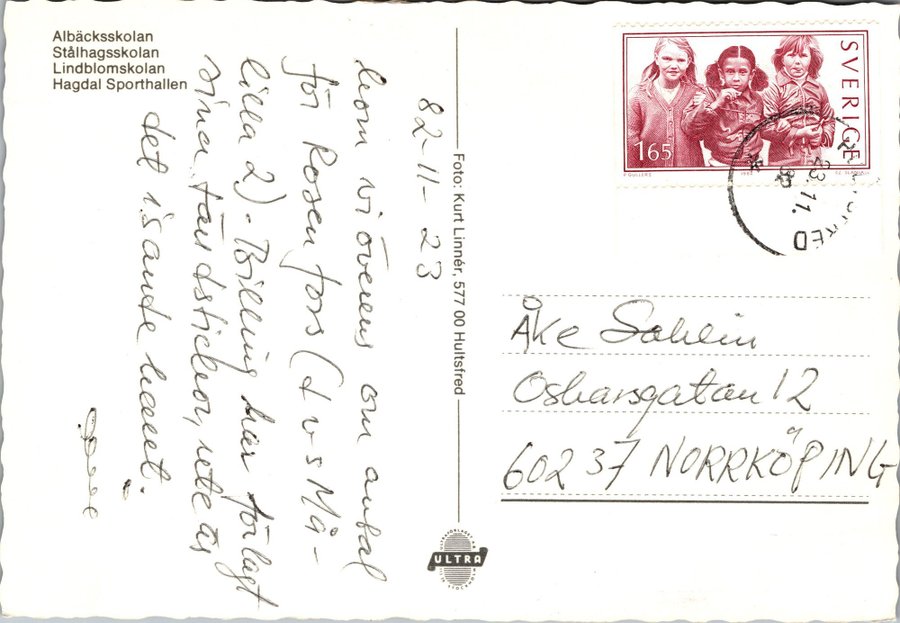 Albäcksskolan
Stålhagsskolan
Lindblomskolan
Hagdal Sporthallen
82-11-23
kom vi överens om antal
för Rosenfors (d v s Må-
lilla 2). Billing har förlagt
sina tändstickor,
det isande havet.
Foto: Kurt Linnér, 577 00 Hultsfred
ULTRA
SVERIGE
165
1982
23.11.
Åke Sahlin
Oskarsgatan 12
602 37 NORRKÖPING